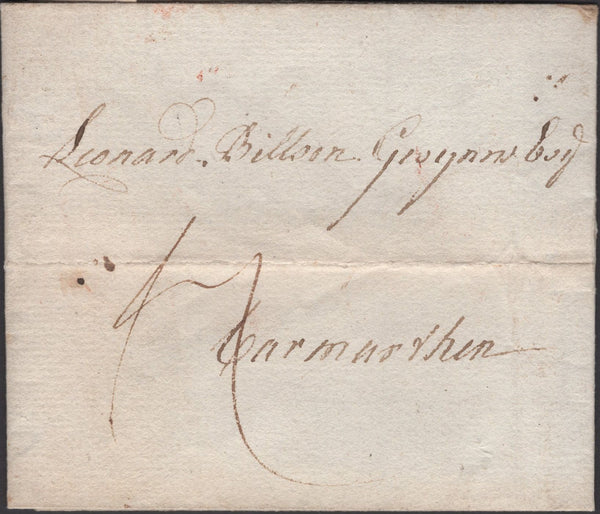 Leonard. Billson. Gwynne Esqr
Carmarthen